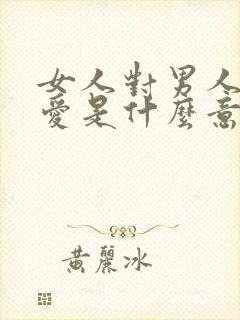 女人對男人
愛是什麼意
黃麗冰